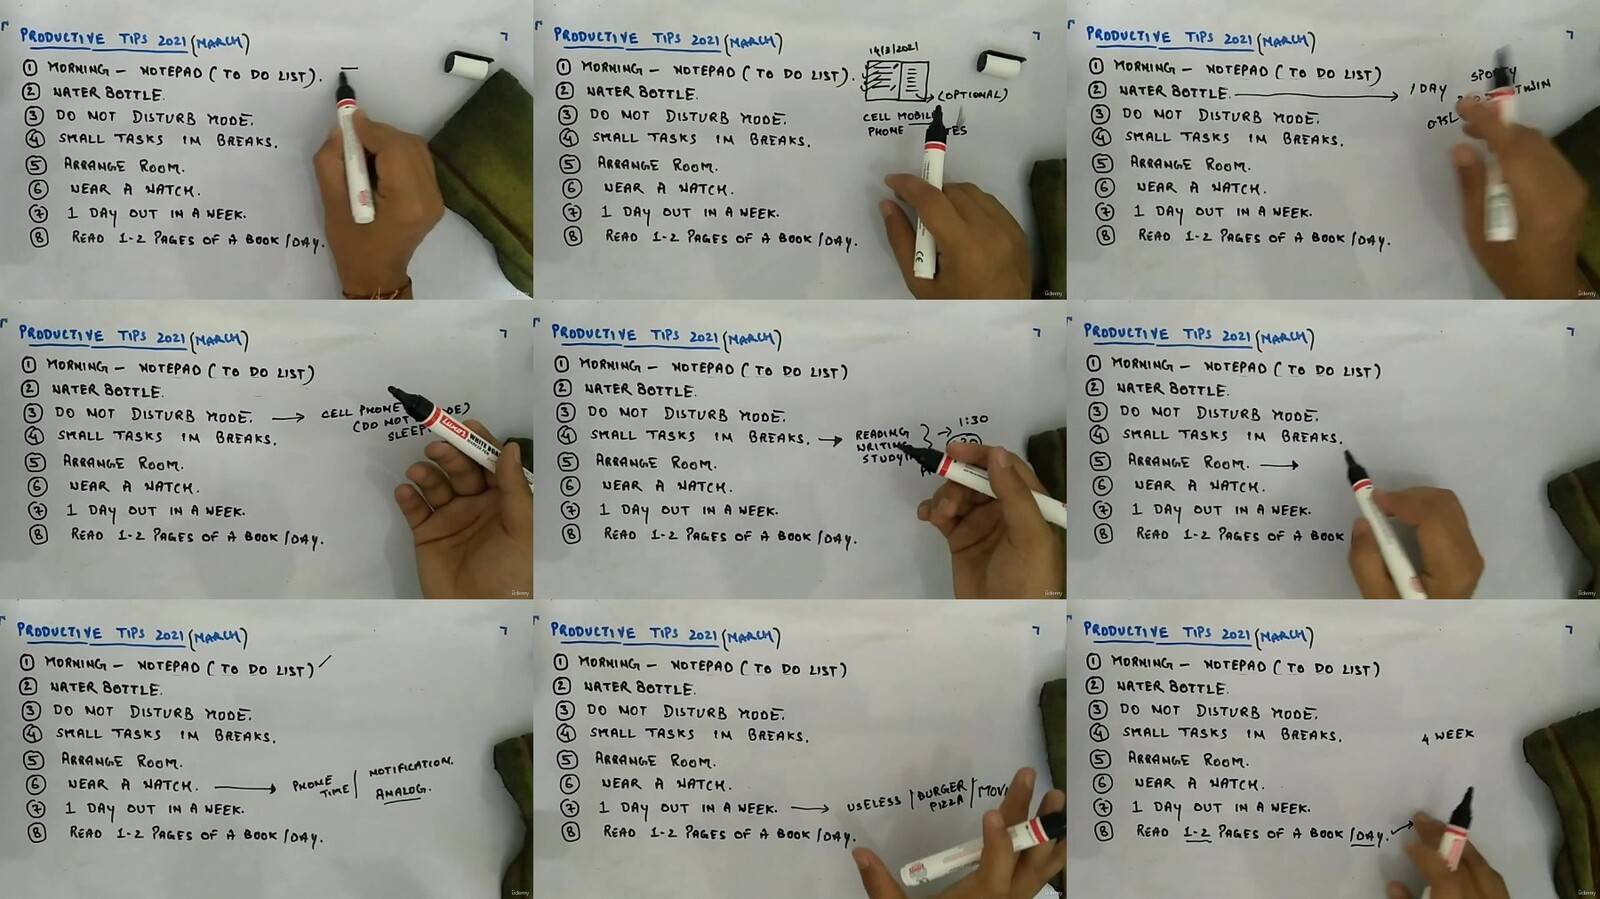 PRODUCTIVE TIPS 2021 (MARCH) 7
① MORNING – NOTEPAD (TO DO LIST). —
② WATER BOTTLE.
③ DO NOT DISTURB MODE.
④ SMALL TASKS IN BREAKS.
⑤ ARRANGE ROOM.
⑥ WEAR A WATCH.
⑦ 1 DAY OUT IN A WEEK.
⑧ READ 1-2 PAGES OF A BOOK/DAY.
PRODUCTIVE TIPS 2021 (MARCH) 7
14/3/2021
① MORNING – NOTEPAD (TO DO LIST).
② WATER BOTTLE.
→ (OPTIONAL)
③ DO NOT DISTURB MODE.
CELL
PHONE
④ SMALL TASKS IN BREAKS.
⑤ ARRANGE ROOM.
⑥ WEAR A WATCH.
⑦ 1 DAY OUT IN A WEEK.
⑧ READ 1-2 PAGES OF A BOOK/DAY.
udemy
PRODUCTIVE TIPS 2021 (MARCH) 7
① MORNING – NOTEPAD (TO DO LIST)
② WATER BOTTLE. → 1 DAY
③ DO NOT DISTURB MODE.
④ SMALL TASKS IN BREAKS.
⑤ ARRANGE ROOM.
⑥ WEAR A WATCH.
⑦ 1 DAY OUT IN A WEEK.
⑧ READ 1-2 PAGES OF A BOOK/DAY.
udemy
PRODUCTIVE TIPS 2021 (MARCH) 7
① MORNING – NOTEPAD (TO DO LIST)
② WATER BOTTLE.
③ DO NOT DISTURB MODE. → CELL PHONE
(DO NOT
SLEEP
④ SMALL TASKS IN BREAKS.
⑤ ARRANGE ROOM.
⑥ WEAR A WATCH.
⑦ 1 DAY OUT IN A WEEK.
⑧ READ 1-2 PAGES OF A BOOK/DAY.
WHITE BOARD
udemy
PRODUCTIVE TIPS 2021 (MARCH) 7
① MORNING – NOTEPAD (TO DO LIST)
② WATER BOTTLE.
③ DO NOT DISTURB MODE.
④ SMALL TASKS IN BREAKS. → READING } → 1:30
WRITING
⑤ ARRANGE ROOM.
⑥ WEAR A WATCH.
⑦ 1 DAY OUT IN A WEEK.
⑧ READ 1-2 PAGES OF A BOOK/DAY.
udemy
PRODUCTIVE TIPS 2021 (MARCH) 7
① MORNING – NOTEPAD (TO DO LIST)
② WATER BOTTLE.
③ DO NOT DISTURB MODE.
④ SMALL TASKS IN BREAKS.
⑤ ARRANGE ROOM. →
⑥ WEAR A WATCH.
⑦ 1 DAY OUT IN A WEEK.
⑧ READ 1-2 PAGES OF A BOOK
udemy
PRODUCTIVE TIPS 2021 (MARCH) 7
① MORNING – NOTEPAD (TO DO LIST)
② WATER BOTTLE.
③ DO NOT DISTURB MODE.
④ SMALL TASKS IN BREAKS.
⑤ ARRANGE ROOM.
⑥ WEAR A WATCH. → PHONE TIME | NOTIFICATION. ANALOG.
⑦ 1 DAY OUT IN A WEEK.
⑧ READ 1-2 PAGES OF A BOOK/DAY.
udemy
PRODUCTIVE TIPS 2021 (MARCH) 7
① MORNING – NOTEPAD (TO DO LIST)
② WATER BOTTLE.
③ DO NOT DISTURB MODE.
④ SMALL TASKS IN BREAKS.
⑤ ARRANGE ROOM.
⑥ WEAR A WATCH.
⑦ 1 DAY OUT IN A WEEK. → USELESS / BURGER PIZZA /
⑧ READ 1-2 PAGES OF A BOOK/DAY.
udemy
PRODUCTIVE TIPS 2021 (MARCH) 7
① MORNING – NOTEPAD (TO DO LIST)
② WATER BOTTLE.
③ DO NOT DISTURB MODE.
④ SMALL TASKS IN BREAKS. 4 WEEK
⑤ ARRANGE ROOM.
⑥ WEAR A WATCH.
⑦ 1 DAY OUT IN A WEEK.
⑧ READ 1-2 PAGES OF A BOOK/DAY. →
udemy